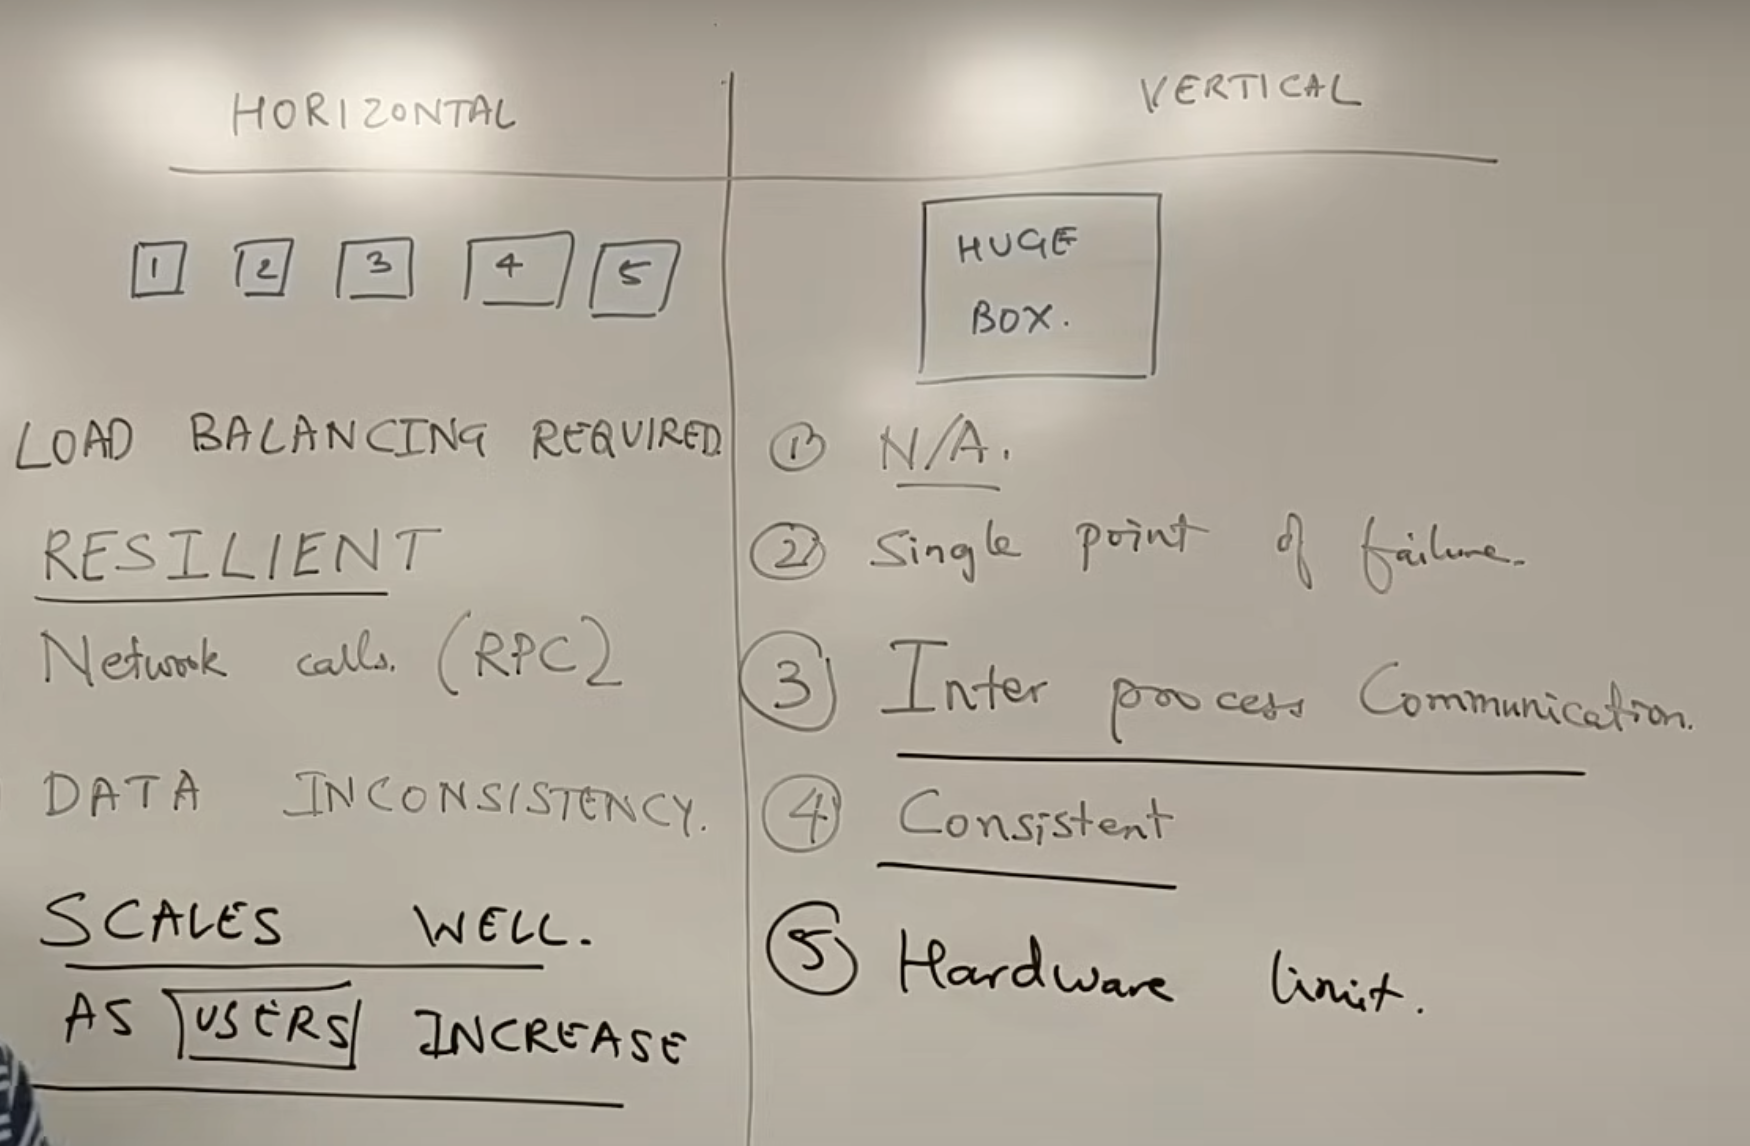 HORIZONTAL
1 2 3 4 5
LOAD BALANCING REQUIRED
RESILIENT
Network calls. (RPC)
DATA INCONSISTENCY.
SCALES WELL.
AS USERS INCREASE
VERTICAL
HUGE
BOX.
1) N/A.
2) Single point of failure.
3) Inter process Communication.
4) Consistent
5) Hardware limit.